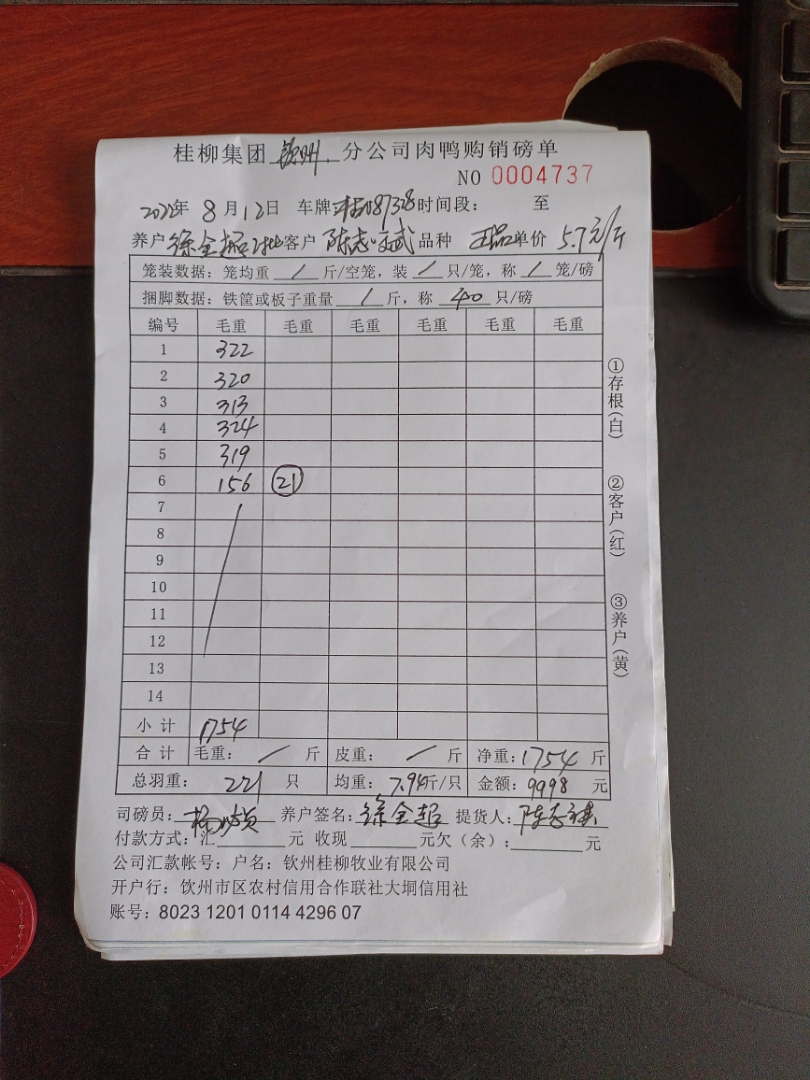 桂柳集团 钦州 分公司肉鸭购销磅单
NO 0004737
2022年 8月12日 车牌 87328 时间段： 至
养户 徐全超 客户 陈志 武 品种 单价 5.7元/斤
笼装数据：笼均重 / 斤/空笼，装 / 只/笼，称 / 笼/磅
捆脚数据：铁筐或板子重量 / 斤，称 40 只/磅
编号 毛重 毛重 毛重 毛重 毛重 毛重
1 322
2 320
3 313
4 324
5 319
6 156 21
7
8
9
10
11
12
13
14
小计 1754
合计 毛重： / 斤 皮重： / 斤 净重：1754 斤
总羽重： 221 只 均重：7.94斤/只 金额：9998 元
司磅员： 养户签名：徐全超 提货人：陈
付款方式：汇 元 收现 元欠（余）： 元
公司汇款帐号：户名：钦州桂柳牧业有限公司
开户行：钦州市区农村信用合作联社大垌信用社
账号：8023 1201 0114 4296 07
①存根（白）
②客户（红）
③养户（黄）